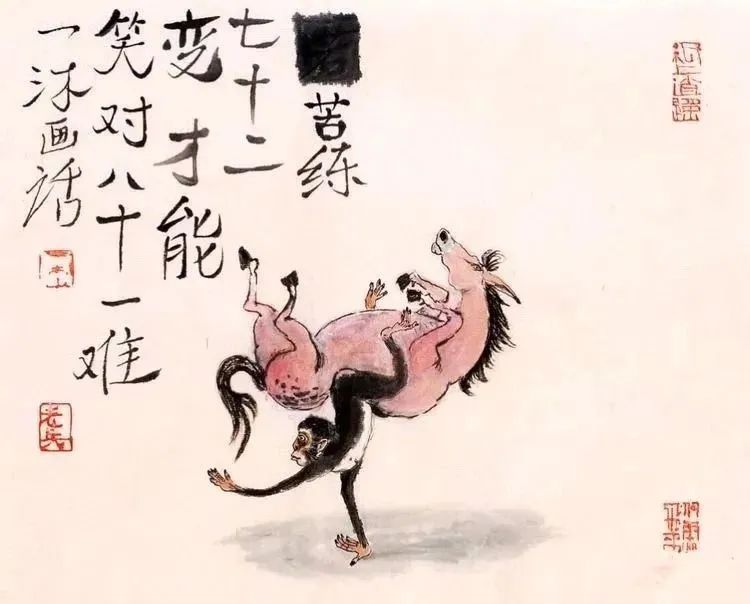 苦练
七十二
变才能
笑对八十一难
一沐画话